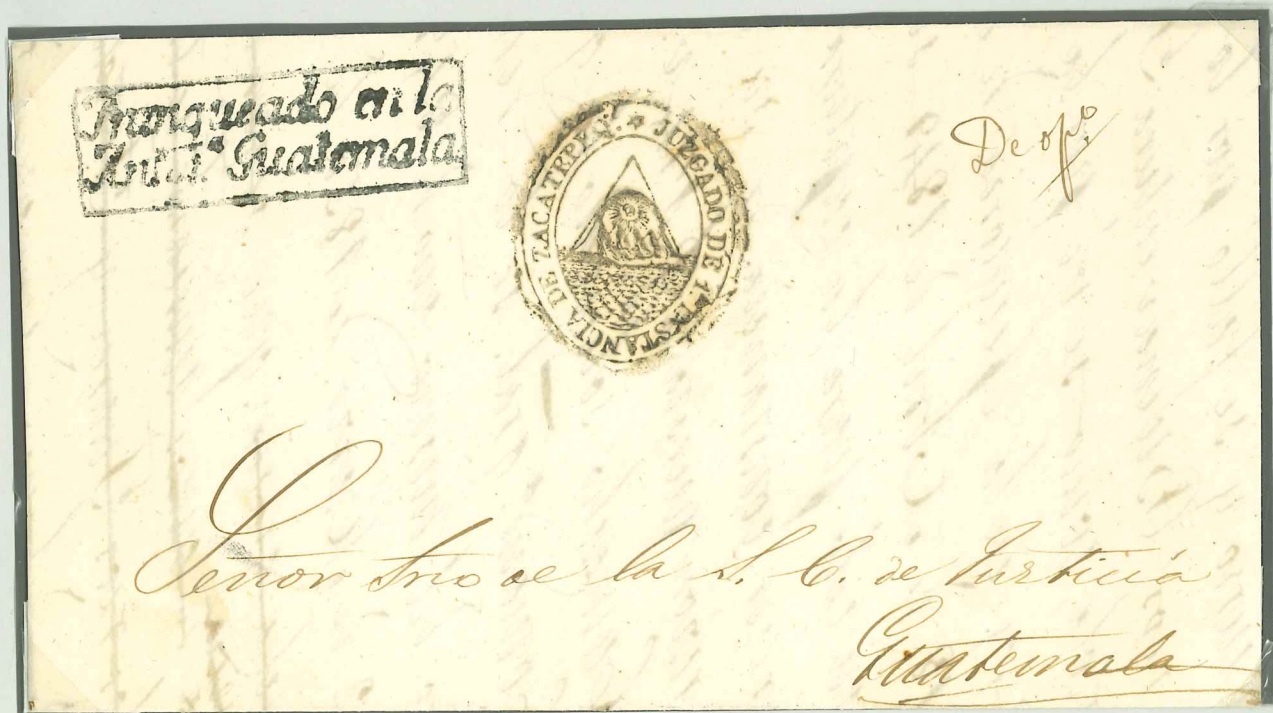 Franqueado en la
Antª. Guatemala
JUZGADO DE 1ª INSTANCIA DE ZACATRPEQ.
De ofo.
Señor Srio de la S. C. de Justicia
Guatemala